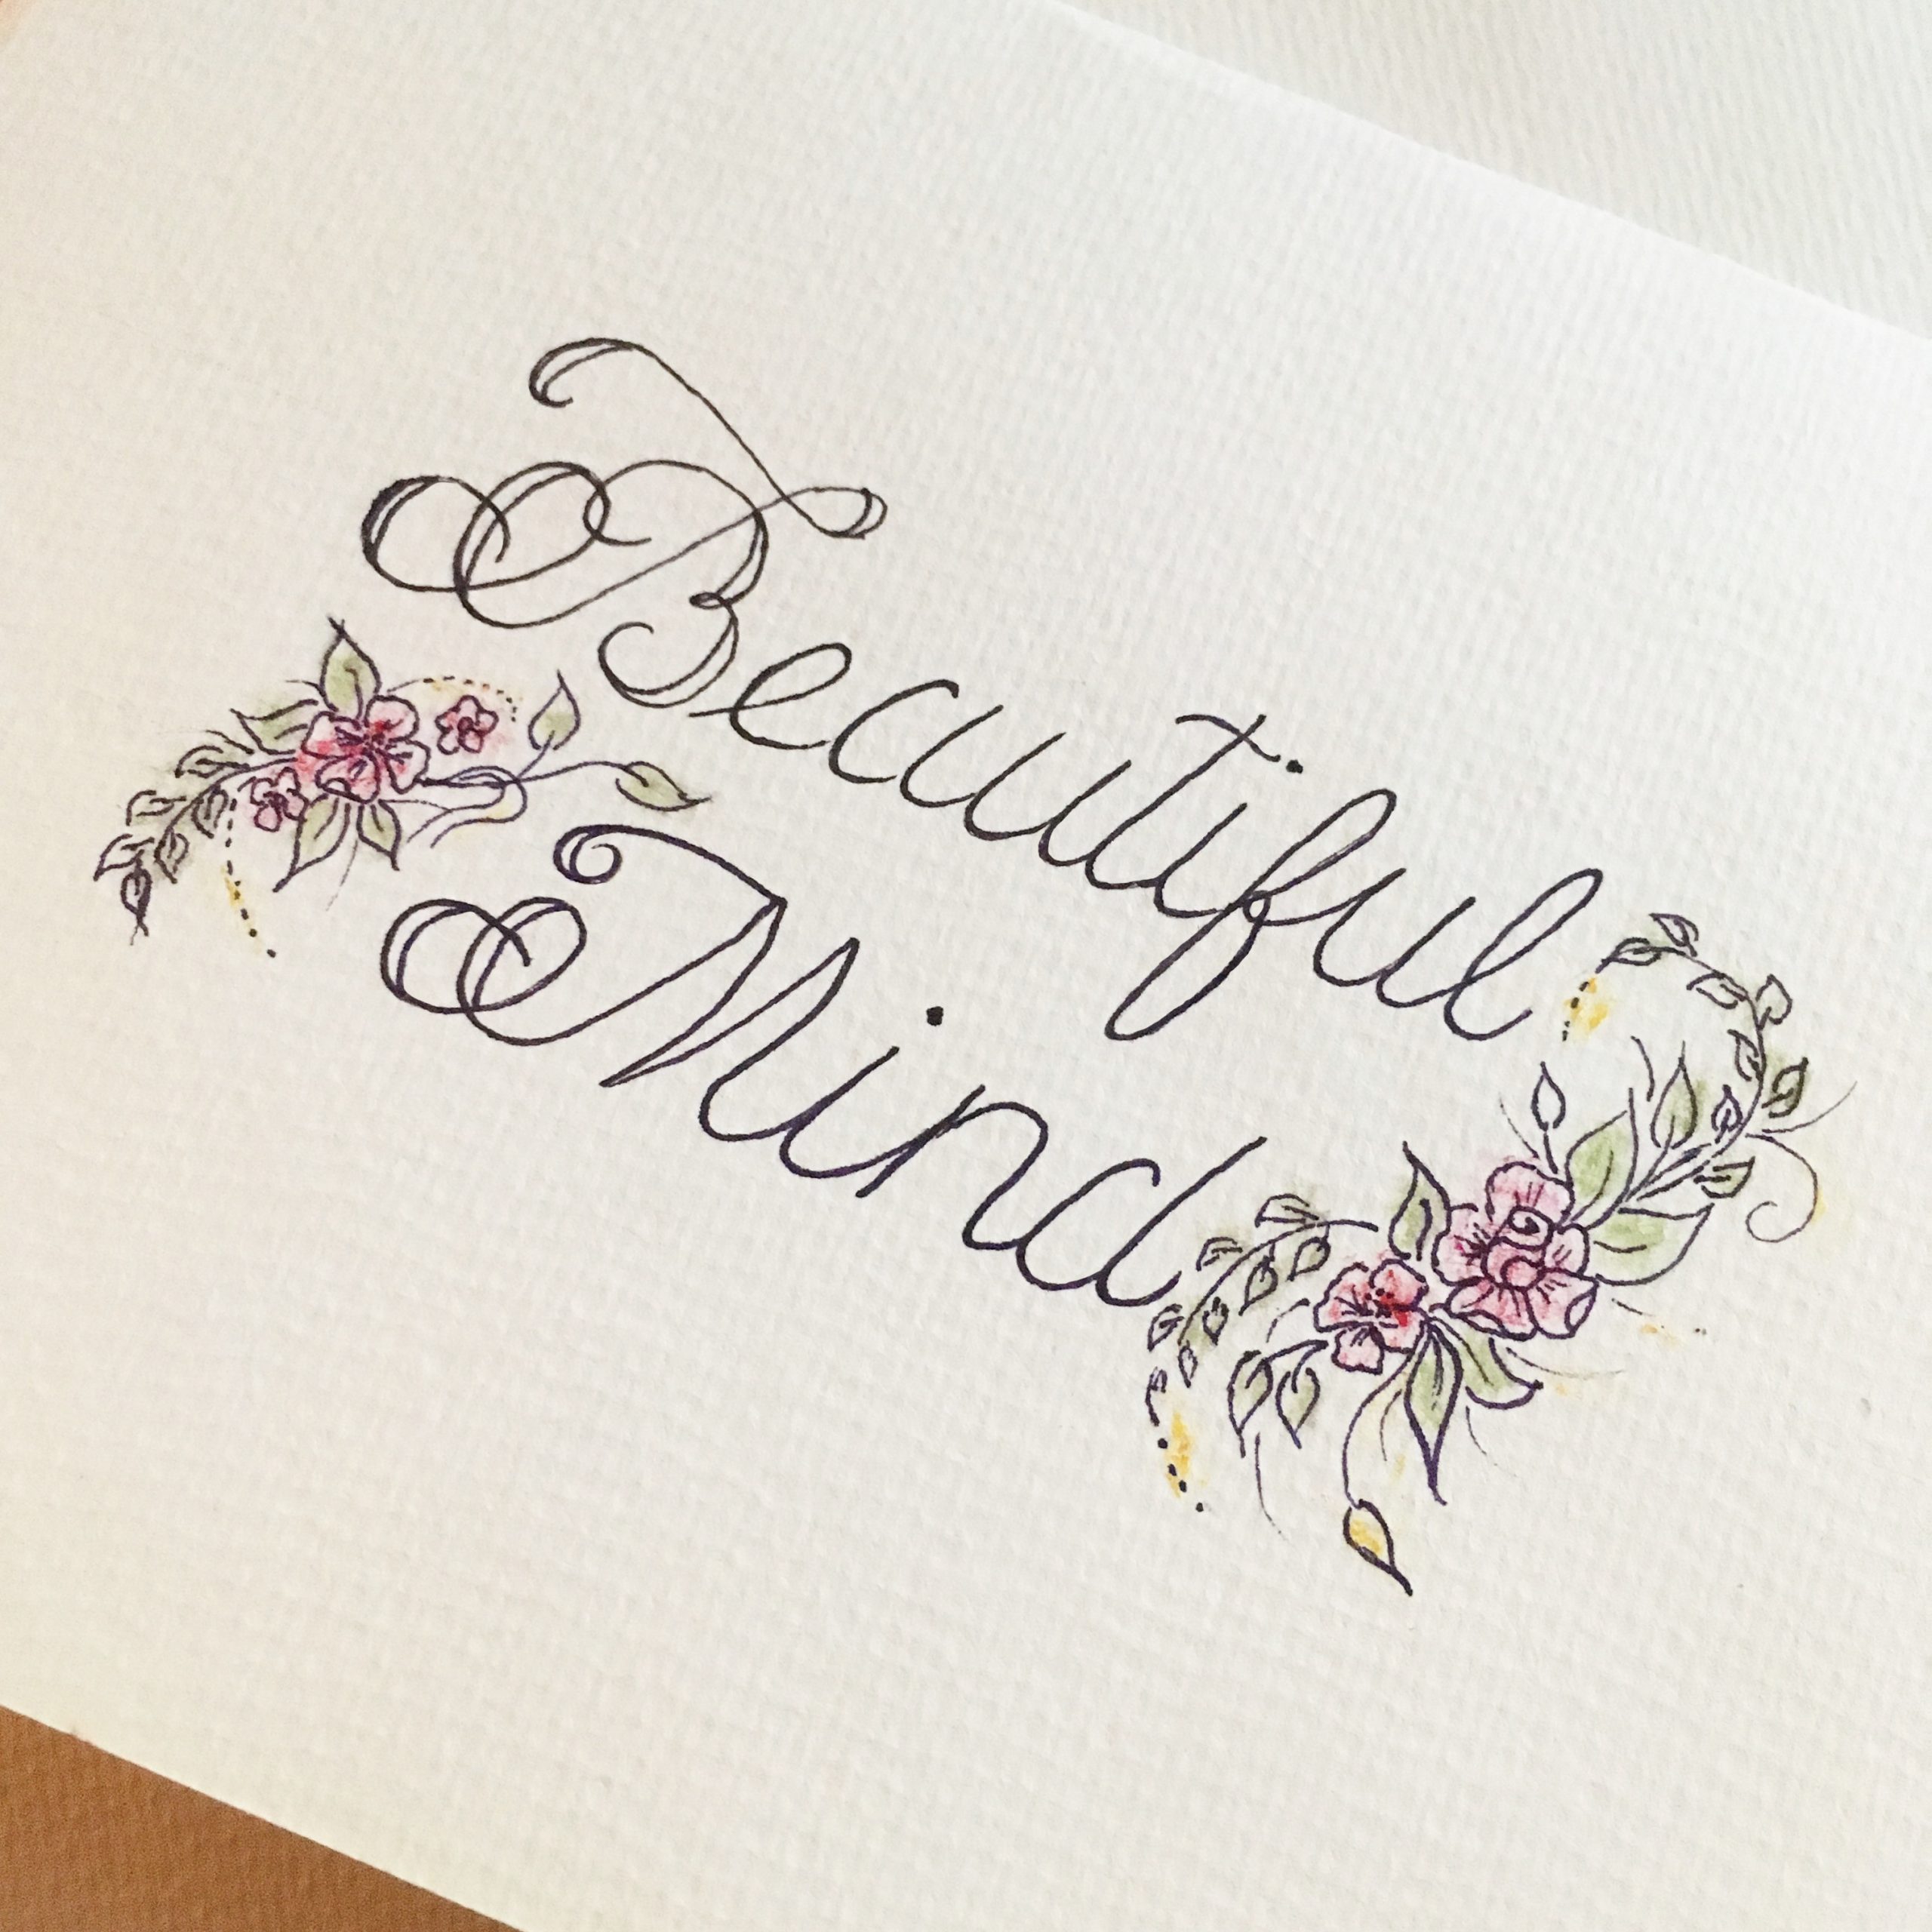 Beautiful
Mind